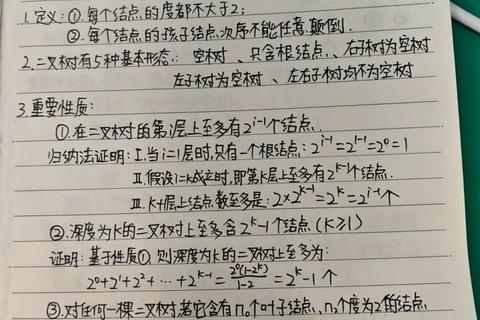 1.定义:①.每个结点的度都不大于2;
②.每个结点的孩子结点次序不能任意颠倒.
2.二叉树有5种基本形态:空树、只含根结点、右子树为空树
左子树为空树、左右子树均不为空树
3.重要性质:
①.在二叉树的第i层上至多有2^{i-1}个结点.
归纳法证明:I.当i=1层时,只有一个根结点:2^{i-1}=2^{1-1}=2^0=1
II.假设i=k成立时,即第k层至多有2^{k-1}个结点.
III.k+1层上结点数至多是:2×2^{k-1}=2^k=2^{i-1}个
②.深度为k的二叉树上至多含2^k-1个结点(k≥1)
证明:基于性质①,则深度为k的二叉树上至多为:
2^0+2^1+2^2+…+2^{k-1}=\frac{2^0(1-2^k)}{1-2}=2^k-1个
③.对任何一棵二叉树,若它含有n_0个叶子结点、n_2个度为2的结点,